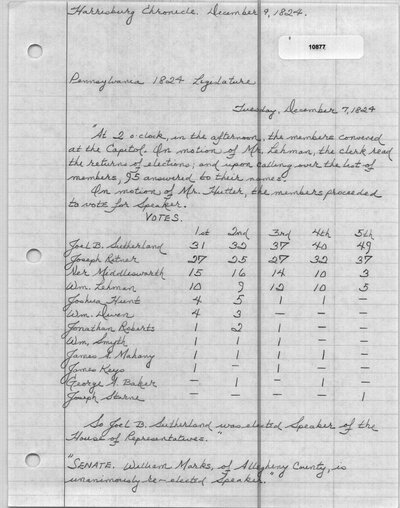 Harrisburg Chronicle. December 9, 1824.
10877
Pennsylvania 1824 Legislature
Tuesday, December 7, 1824
"At 2 o'clock, in the afternoon, the members convened
at the Capitol. On motion of Mr. Lehman, the clerk read
the returns of elections, and upon calling over the list of
members, 95 answered to their names.
On motion of Mr. Hutter, the members proceeded
to vote for Speaker.
VOTES.
1st 2nd 3rd 4th 5th
Joel B. Sutherland 31 32 37 40 49
Joseph Ritner 27 25 27 32 37
Ner Middleswarth 15 16 14 10 3
Wm. Lehman 10 9 12 10 5
Joshua Hunt 4 5 1 1 —
Wm. Duven 4 3 — — —
Jonathan Roberts 1 2 1 — —
Wm. Smyth 1 1 1 — —
James G. Mahany 1 1 1 1 —
James Keys 1 — 1 — —
George G. Baker — 1 — 1 —
Joseph Starne — — — — 1
So Joel B. Sutherland was elected Speaker of the
House of Representatives."
"SENATE. William Marks, of Allegheny County, is
unanimously re-elected Speaker."